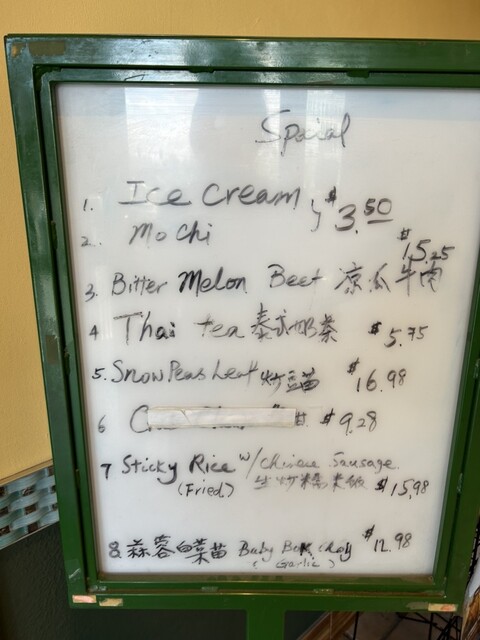 Special
1. Ice Cream } $3.50
2. Mo Chi
3. Bitter Melon Beef 凉瓜牛肉 $15.25
4 Thai tea 泰式奶茶 $5.75
5. Snow Peas Leaf 炒豆苗 $16.98
6 $9.28
7 Sticky Rice w/ Chinese Sausage
(Fried.) 生炒糯米饭 $15.98
8. 蒜蓉白菜苗 Baby Bok Choy $12.98
(Garlic)